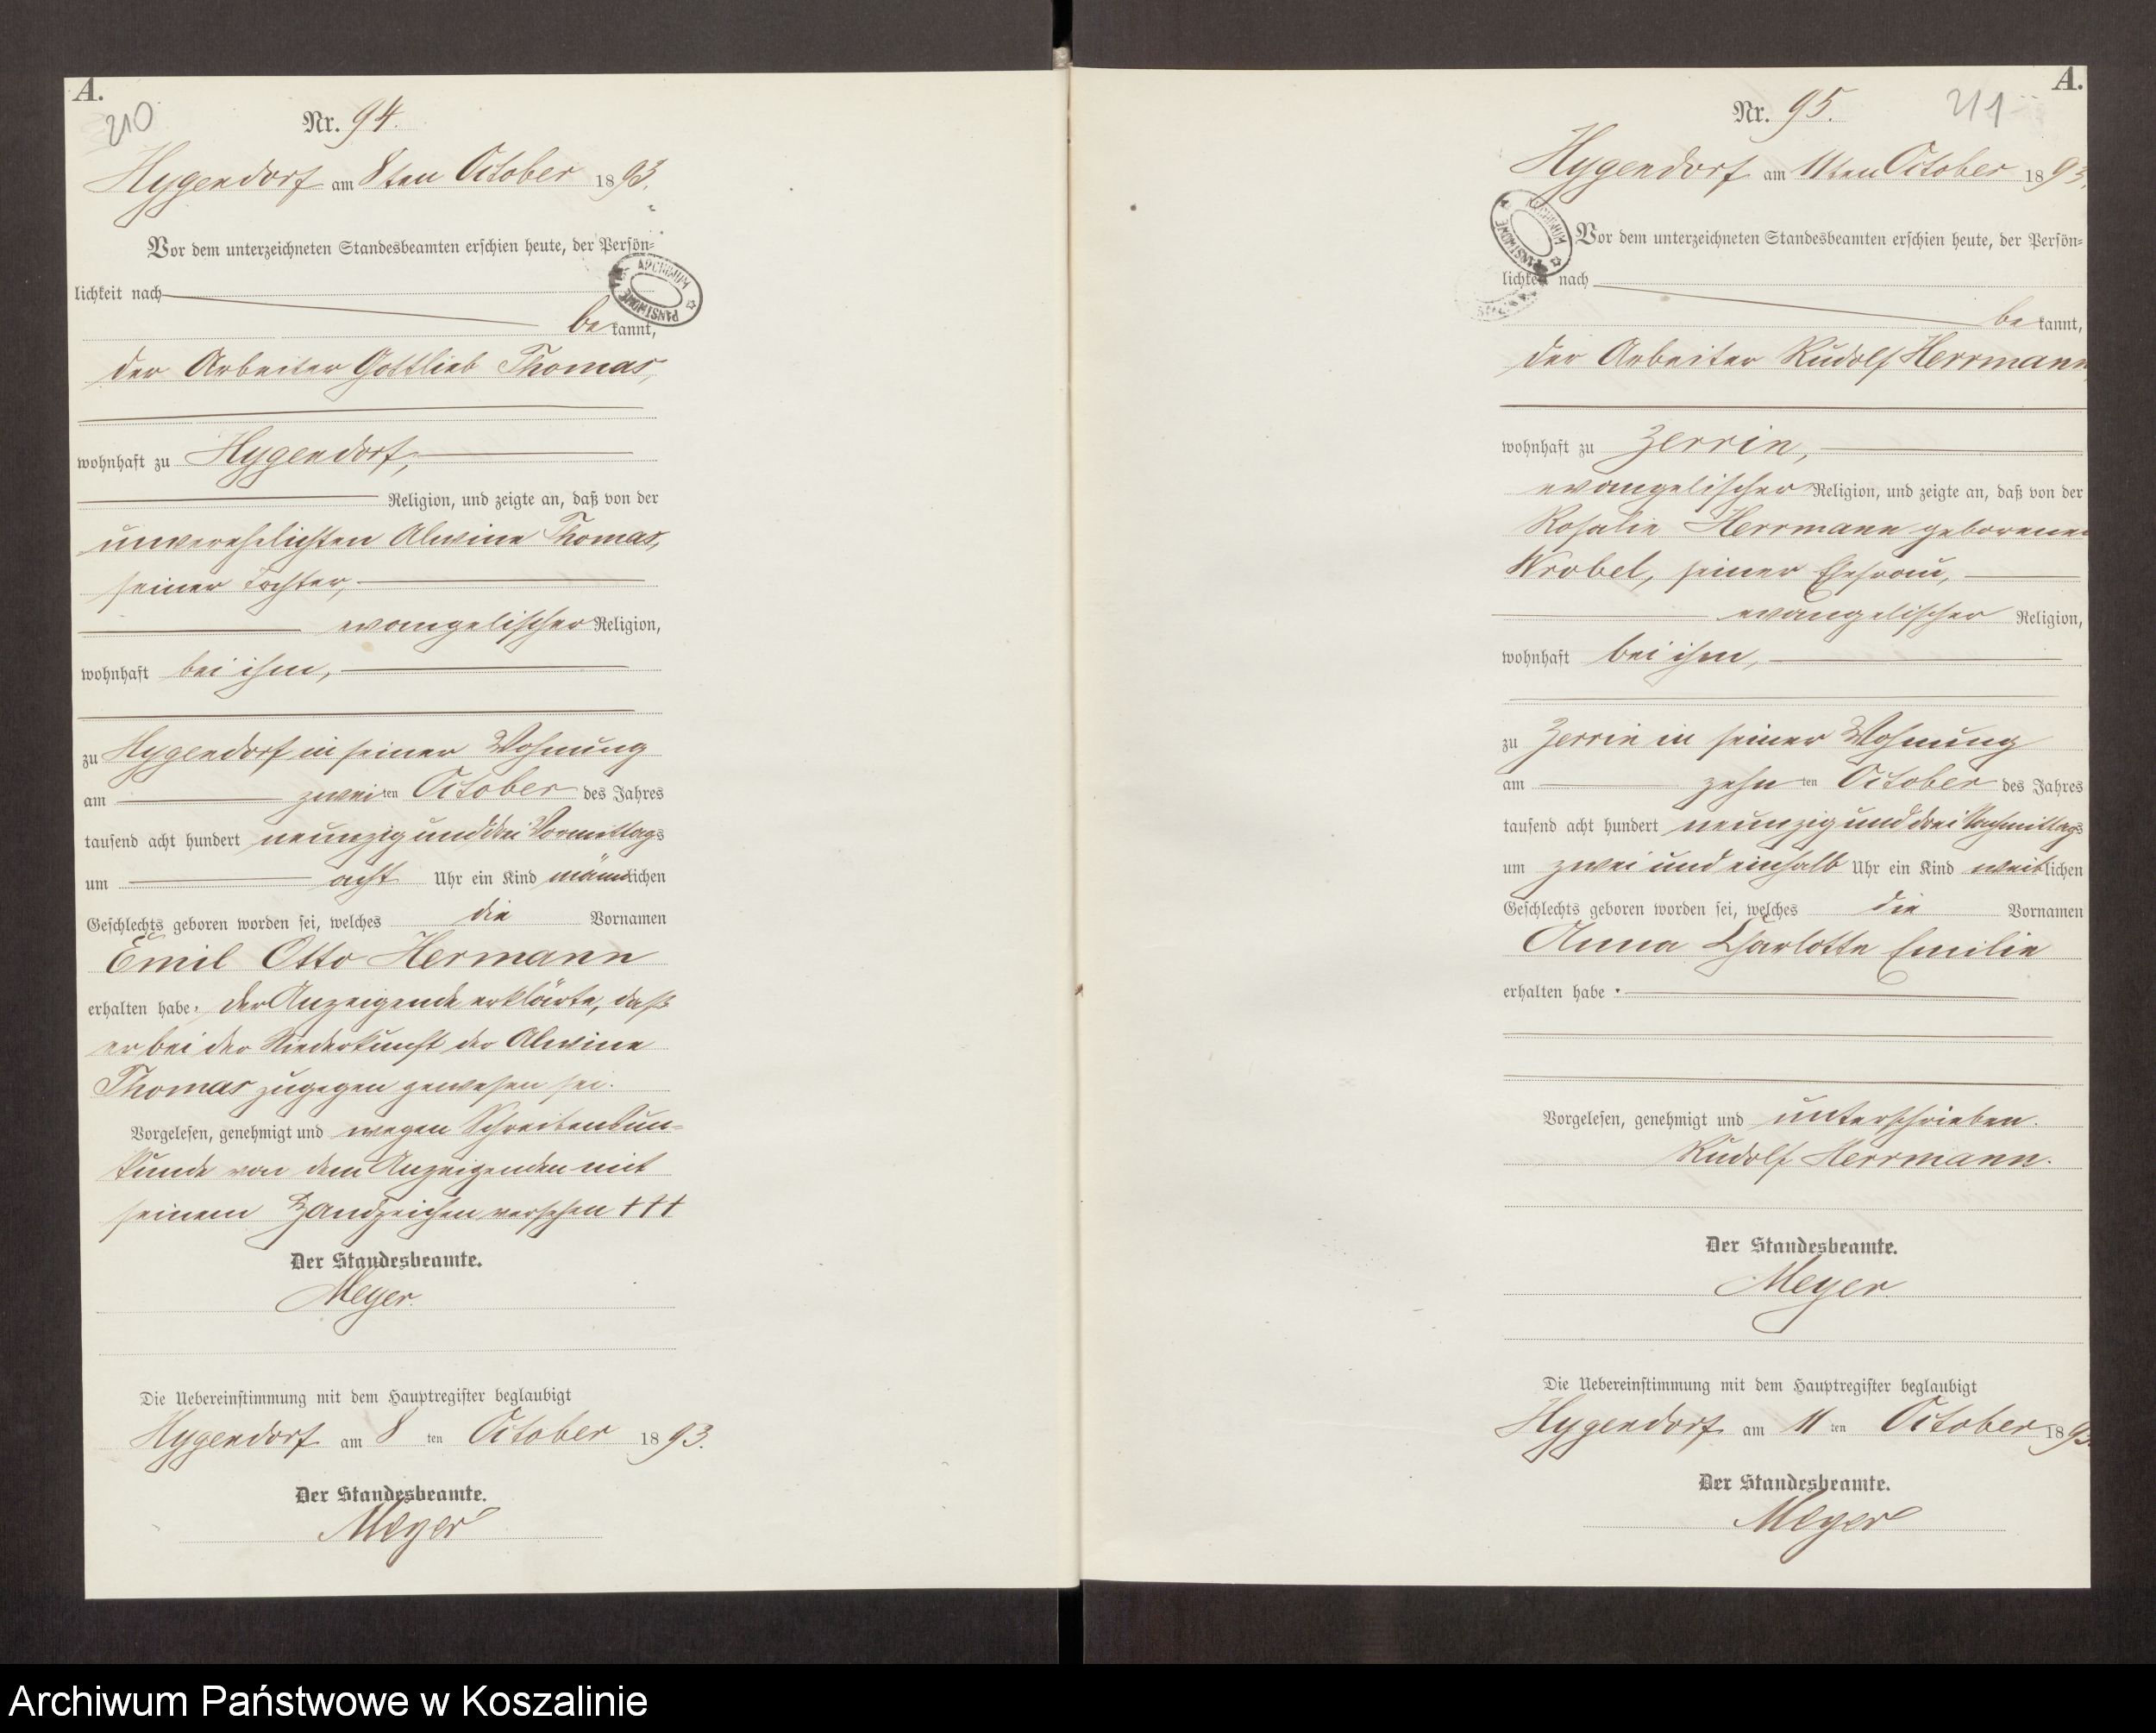 A.
210
Nr. 94.
Hygendorf am 8ten October 1893.
Vor dem unterzeichneten Standesbeamten erschien heute, der Persön=
lichkeit nach
bekannt,
der Arbeiter Gottlieb Thomas,
wohnhaft zu Hygendorf,
Religion, und zeigte an, daß von der
unverehelichten Alwine Thomas,
seiner Tochter,
evangelischer Religion,
wohnhaft bei ihm,
zu Hygendorf in seiner Wohnung
am zweiten October des Jahres
tausend acht hundert neunzig und drei Vormittags
um acht Uhr ein Kind männlichen
Geschlechts geboren worden sei, welches die Vornamen
Emil Otto Hermann
erhalten habe. Der Anzeigende erklärte, daß
er bei der Niederkunft der Alwine
Thomas zugegen gewesen sei.
Vorgelesen, genehmigt und wegen Schreibensun=
kunde von dem Anzeigenden mit
seinem Handzeichen versehen +++
Der Standesbeamte.
Meyer.
Die Uebereinstimmung mit dem Hauptregister beglaubigt
Hygendorf am 8ten October 1893.
Der Standesbeamte.
Meyer
ARCHIWUM PAŃSTWOWE
A.
211
Nr. 95.
Hygendorf am 11ten October 1893.
Vor dem unterzeichneten Standesbeamten erschien heute, der Persön=
lichkeit nach
bekannt,
der Arbeiter Rudolf Herrmann
wohnhaft zu Zerrin,
evangelischer Religion, und zeigte an, daß von der
Rosalie Herrmann geborenen
Wrobel, seiner Ehefrau,
evangelischer Religion,
wohnhaft bei ihm,
zu Zerrin in seiner Wohnung
am zehnten October des Jahres
tausend acht hundert neunzig und drei Nachmittags
um zwei und einhalb Uhr ein Kind weiblichen
Geschlechts geboren worden sei, welches die Vornamen
Anna Charlotte Emilie
erhalten habe.
Vorgelesen, genehmigt und unterschrieben.
Rudolf Herrmann.
Der Standesbeamte.
Meyer.
Die Uebereinstimmung mit dem Hauptregister beglaubigt
Hygendorf am 11ten October 1893.
Der Standesbeamte.
Meyer
ARCHIWUM PAŃSTWOWE
Archiwum Państwowe w Koszalinie